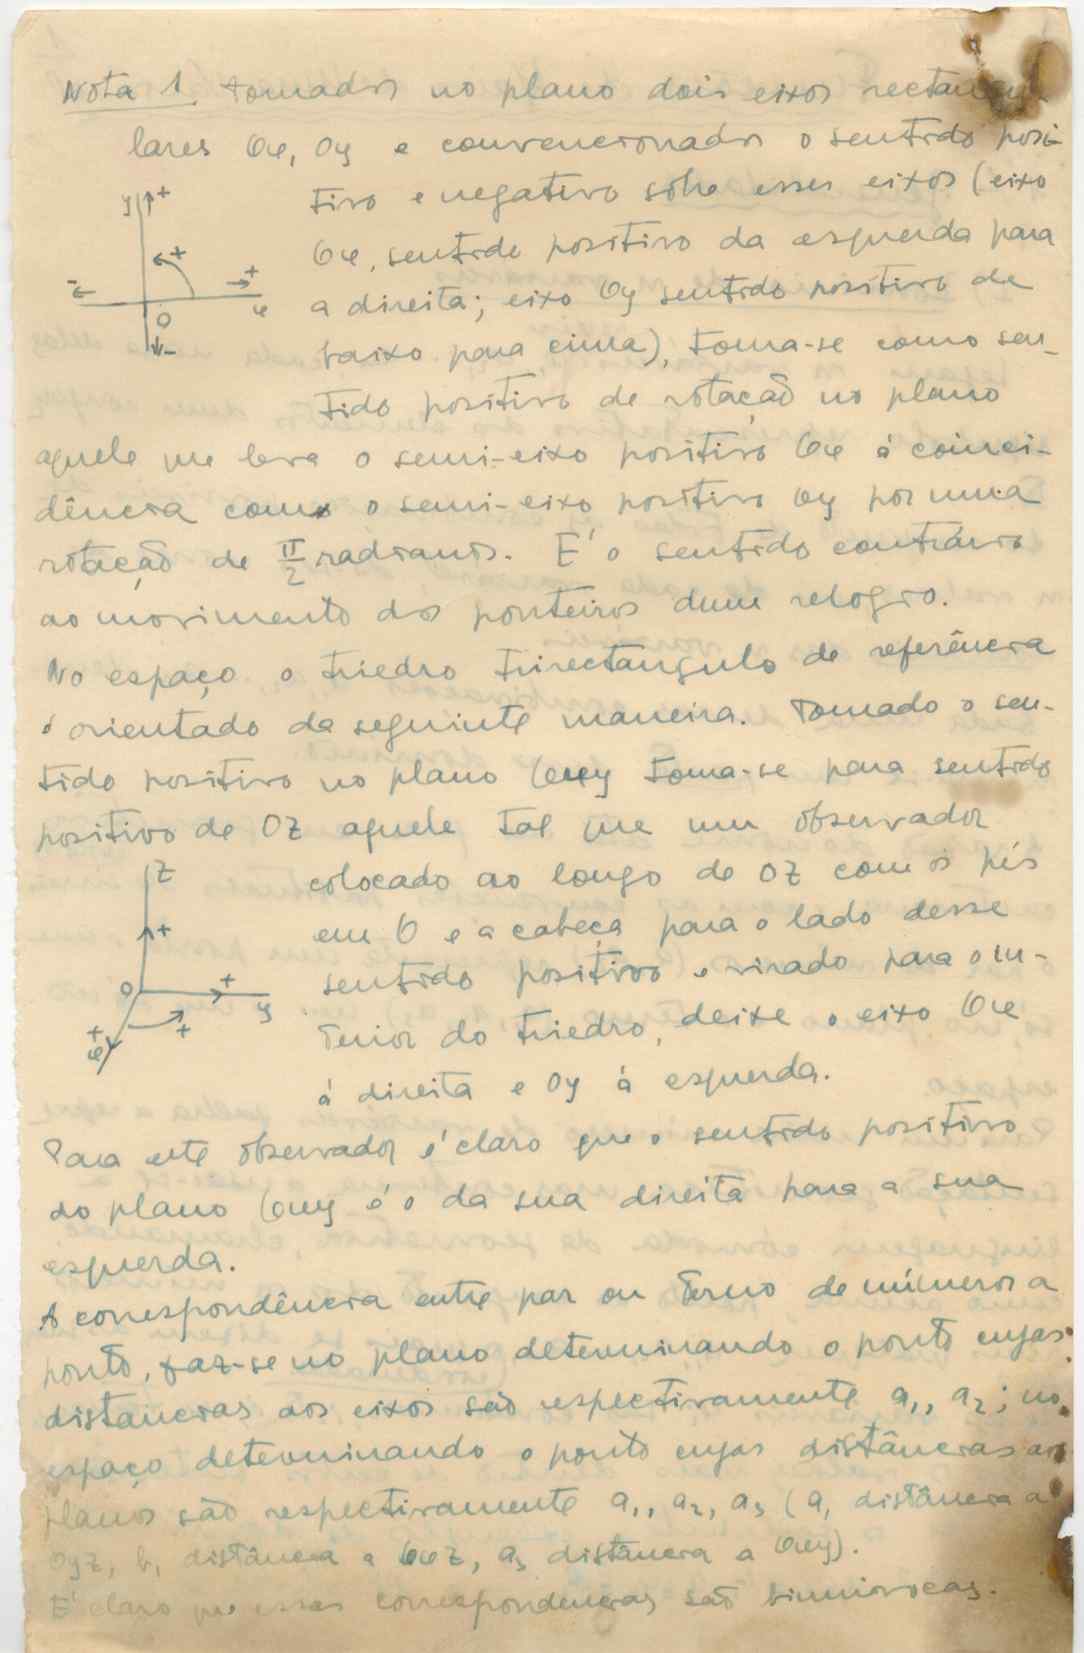 Nota 1. Tomados no plano dois eixos rectangu-
lares Ox, Oy e convencionados o sentido posi-
tivo e negativo sobre esses eixos (eixo
Ox, sentido positivo da esquerda para
a direita; eixo Oy sentido positivo de
baixo para cima), toma-se como sen-
tido positivo de rotação no plano
y + + + - x O -
aquele que leva o semi-eixo positivo Ox à coinci-
dência com o semi-eixo positivo Oy por uma
rotação de π/2 radianos. E' o sentido contrário
ao movimento dos ponteiros dum relogio.
No espaço o triedro trirectangulo de referência
é orientado da seguinte maneira. Tomado o sen-
tido positivo no plano Oxy toma-se para sentido
positivo de OZ aquele tal que um observador
colocado ao longo de OZ com os pés
em O e a cabeça para o lado desse
sentido positivo e virado para o in-
terior do triedro, deixe o eixo Ox
à direita e Oy à esquerda.
Z + O + y + + x
Para este observador é claro que o sentido positivo
do plano Oxy é o da sua direita para a sua
esquerda.
A correspondência entre par ou terno de números a
ponto, faz-se no plano determinando o ponto cujas
distancias aos eixos são respectivamente a₁, a₂; no
espaço determinando o ponto cujas distâncias aos
planos são respectivamente a₁, a₂, a₃ (a₁ distância a
Oyz, b₁ distância a Oxz, a₃ distancia a Oxy).
E' claro que essas correspondencias são biunivocas.